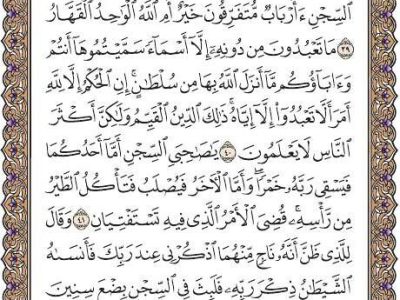 ٱلسِّجۡنِ ءَأَرۡبَابٞ مُّتَفَرِّقُونَ خَيۡرٌ أَمِ ٱللَّهُ ٱلۡوَٰحِدُ ٱلۡقَهَّارُ
٣٩ مَا تَعۡبُدُونَ مِن دُونِهِۦٓ إِلَّآ أَسۡمَآءٗ سَمَّيۡتُمُوهَآ أَنتُمۡ
وَءَابَآؤُكُم مَّآ أَنزَلَ ٱللَّهُ بِهَا مِن سُلۡطَٰنٍۚ إِنِ ٱلۡحُكۡمُ إِلَّا لِلَّهِ
أَمَرَ أَلَّا تَعۡبُدُوٓاْ إِلَّآ إِيَّاهُۚ ذَٰلِكَ ٱلدِّينُ ٱلۡقَيِّمُ وَلَٰكِنَّ أَكۡثَرَ
ٱلنَّاسِ لَا يَعۡلَمُونَ ٤٠ يَٰصَٰحِبَيِ ٱلسِّجۡنِ أَمَّآ أَحَدُكُمَا
فَيَسۡقِي رَبَّهُۥ خَمۡرٗاۖ وَأَمَّا ٱلۡأٓخَرُ فَيُصۡلَبُ فَتَأۡكُلُ ٱلطَّيۡرُ
مِن رَّأۡسِهِۦۚ قُضِيَ ٱلۡأَمۡرُ ٱلَّذِي فِيهِ تَسۡتَفۡتِيَانِ ٤١ وَقَالَ
لِلَّذِي ظَنَّ أَنَّهُۥ نَاجٖ مِّنۡهُمَا ٱذۡكُرۡنِي عِندَ رَبِّكَ فَأَنسَىٰهُ
ٱلشَّيۡطَٰنُ ذِكۡرَ رَبِّهِۦ فَلَبِثَ فِي ٱلسِّجۡنِ بِضۡعَ سِنِينَ